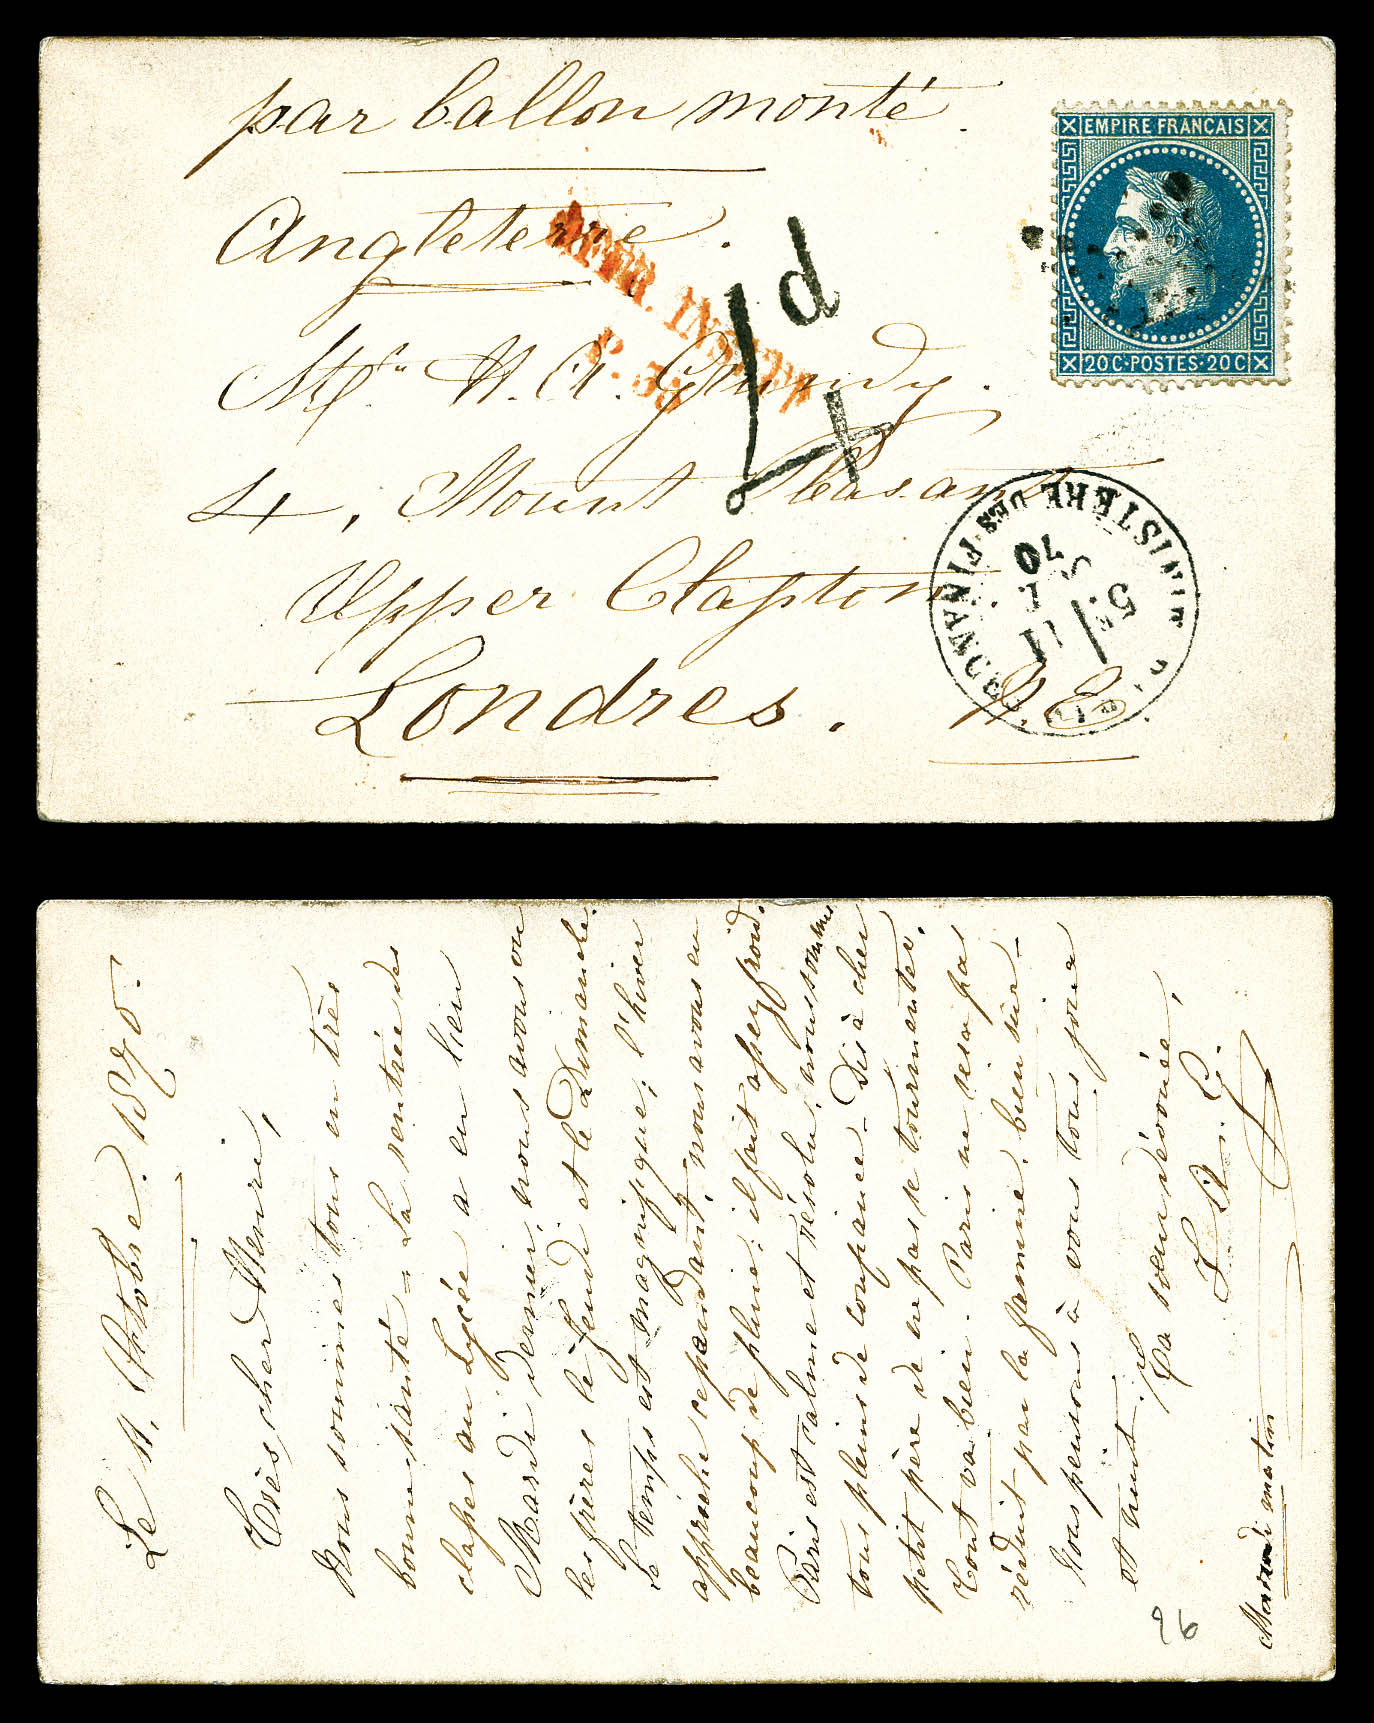 par ballon monté.
Angleterre.
Mr. W. A. Grundy.
4, Mount Pleasant
Upper Clapton.
Londres. N E
AFFR. INSUFF.
P. 35
1d
4
EMPIRE FRANCAIS
20C·POSTES·20C
PARIS MINISTÈRE DES FINANCES
5
70
Le 11, Octobre. 1870.
Très cher Henri,
Nous sommes tous en très
bonne santé - La rentrée des
classes au Lycée a eu lieu
Mardi dernier, nous avons eu
les frères le Jeudi et le Dimanche.
Le temps est magnifique; l'hiver
approche cependant, nous avons eu
beaucoup de pluie; il fait assez froid.
Paris est calme et résolu, nous sommes
tous pleins de confiance - Dis à cher
petit père de ne pas se tourmenter.
Tout va bien. Paris ne sera pas
réduit par la famine, bien sûr -
Nous pensons à vous tous jour
et nuit.
Ta sœur dévouée,
L. A. G.
Mardi matin
26